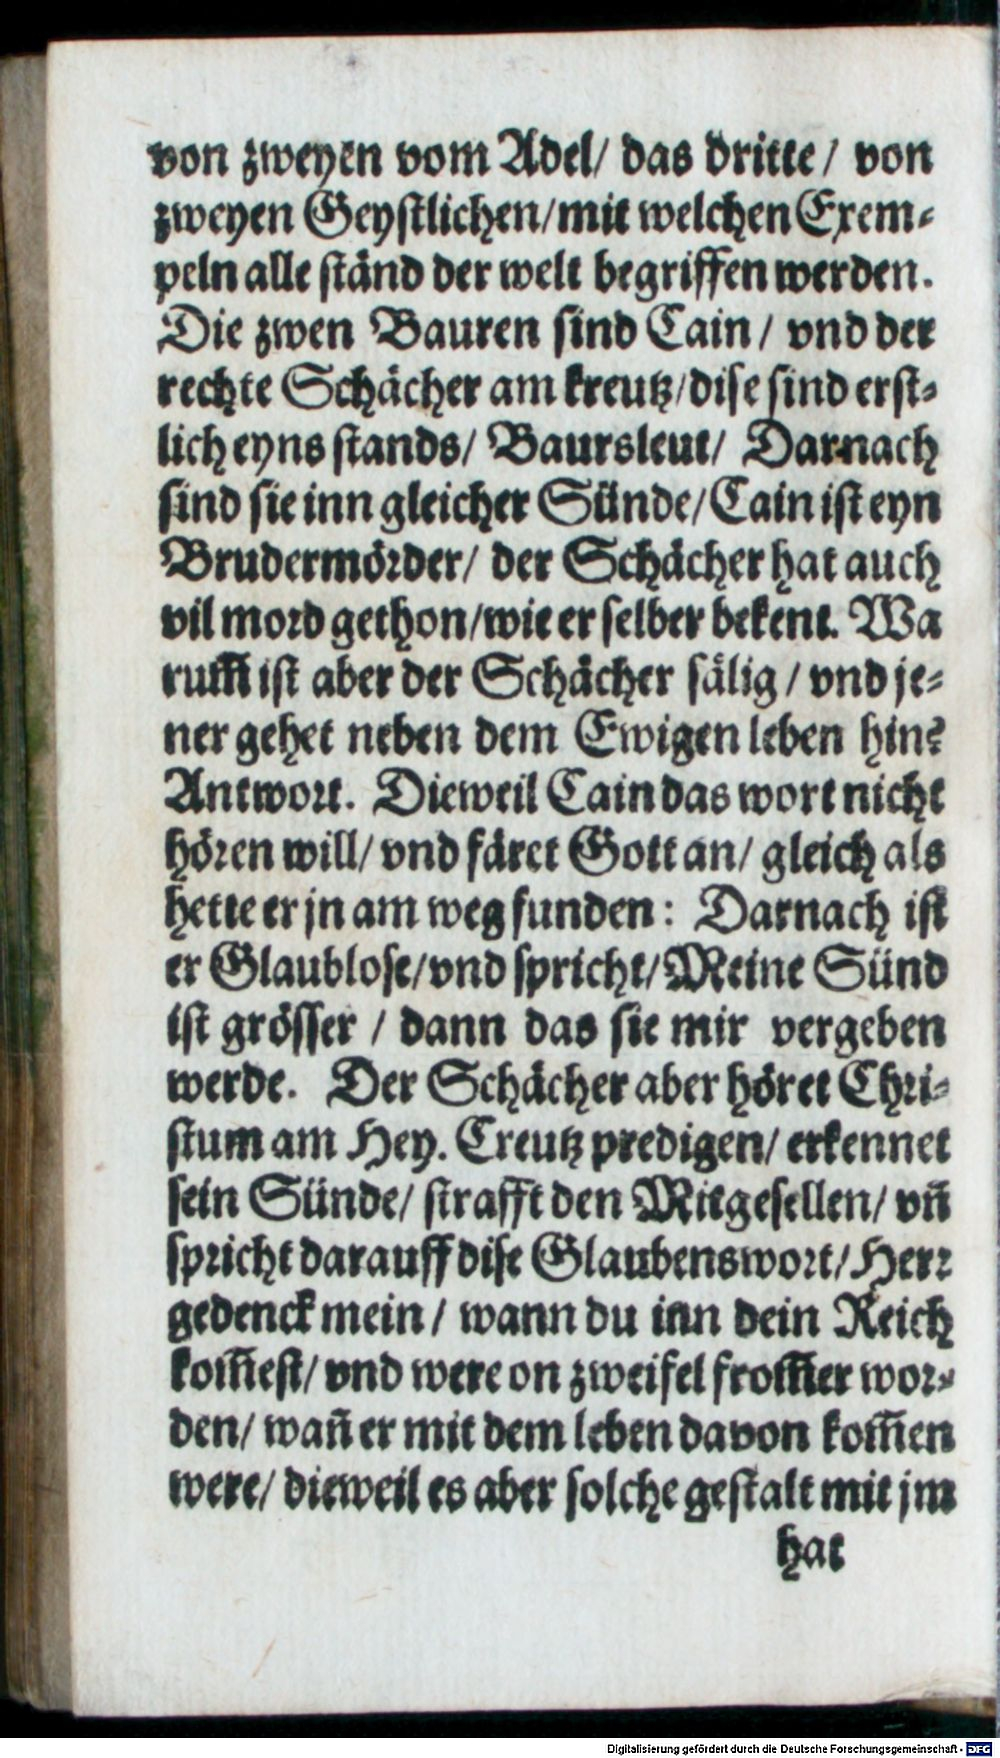 von zweyen vom Adel/ das dritte/ von
zweyen Geystlichen/mit welchen Exem⸗
peln alle ständ der welt begriffen werden.
Die zwen Bauren sind Cain/ vnd der
rechte Schächer am kreutz/dise sind erst⸗
lich eyns stands/ Baursleut/ Darnach
sind sie inn gleicher Sünde/Cain ist eyn
Brudermörder/ der Schächer hat auch
vil mord gethon/wie er selber bekent. Wa
rum̃ ist aber der Schächer sälig/ vnd je⸗
ner gehet neben dem Ewigen leben hin?
Antwort. Dieweil Cain das wort nicht
hören will/ vnd färet Gott an/ gleich als
hette er jn am weg funden: Darnach ist
er Glaublose/vnd spricht/Meine Sünd
ist grösser/ dann das sie mir vergeben
werde. Der Schächer aber höret Chri⸗
stum am Hey. Creutz predigen/ erkennet
sein Sünde/ strafft den Mitgesellen/ vñ
spricht darauff dise Glaubenswort/Herr
gedenck mein/ wann du inn dein Reich
kom̃est/ vnd were on zweifel from̃er wor⸗
den/ wañ er mit dem leben davon kom̃en
were/ dieweil es aber solche gestalt mit jm
hat
Digitalisierung gefördert durch die Deutsche Forschungsgemeinschaft - DFG